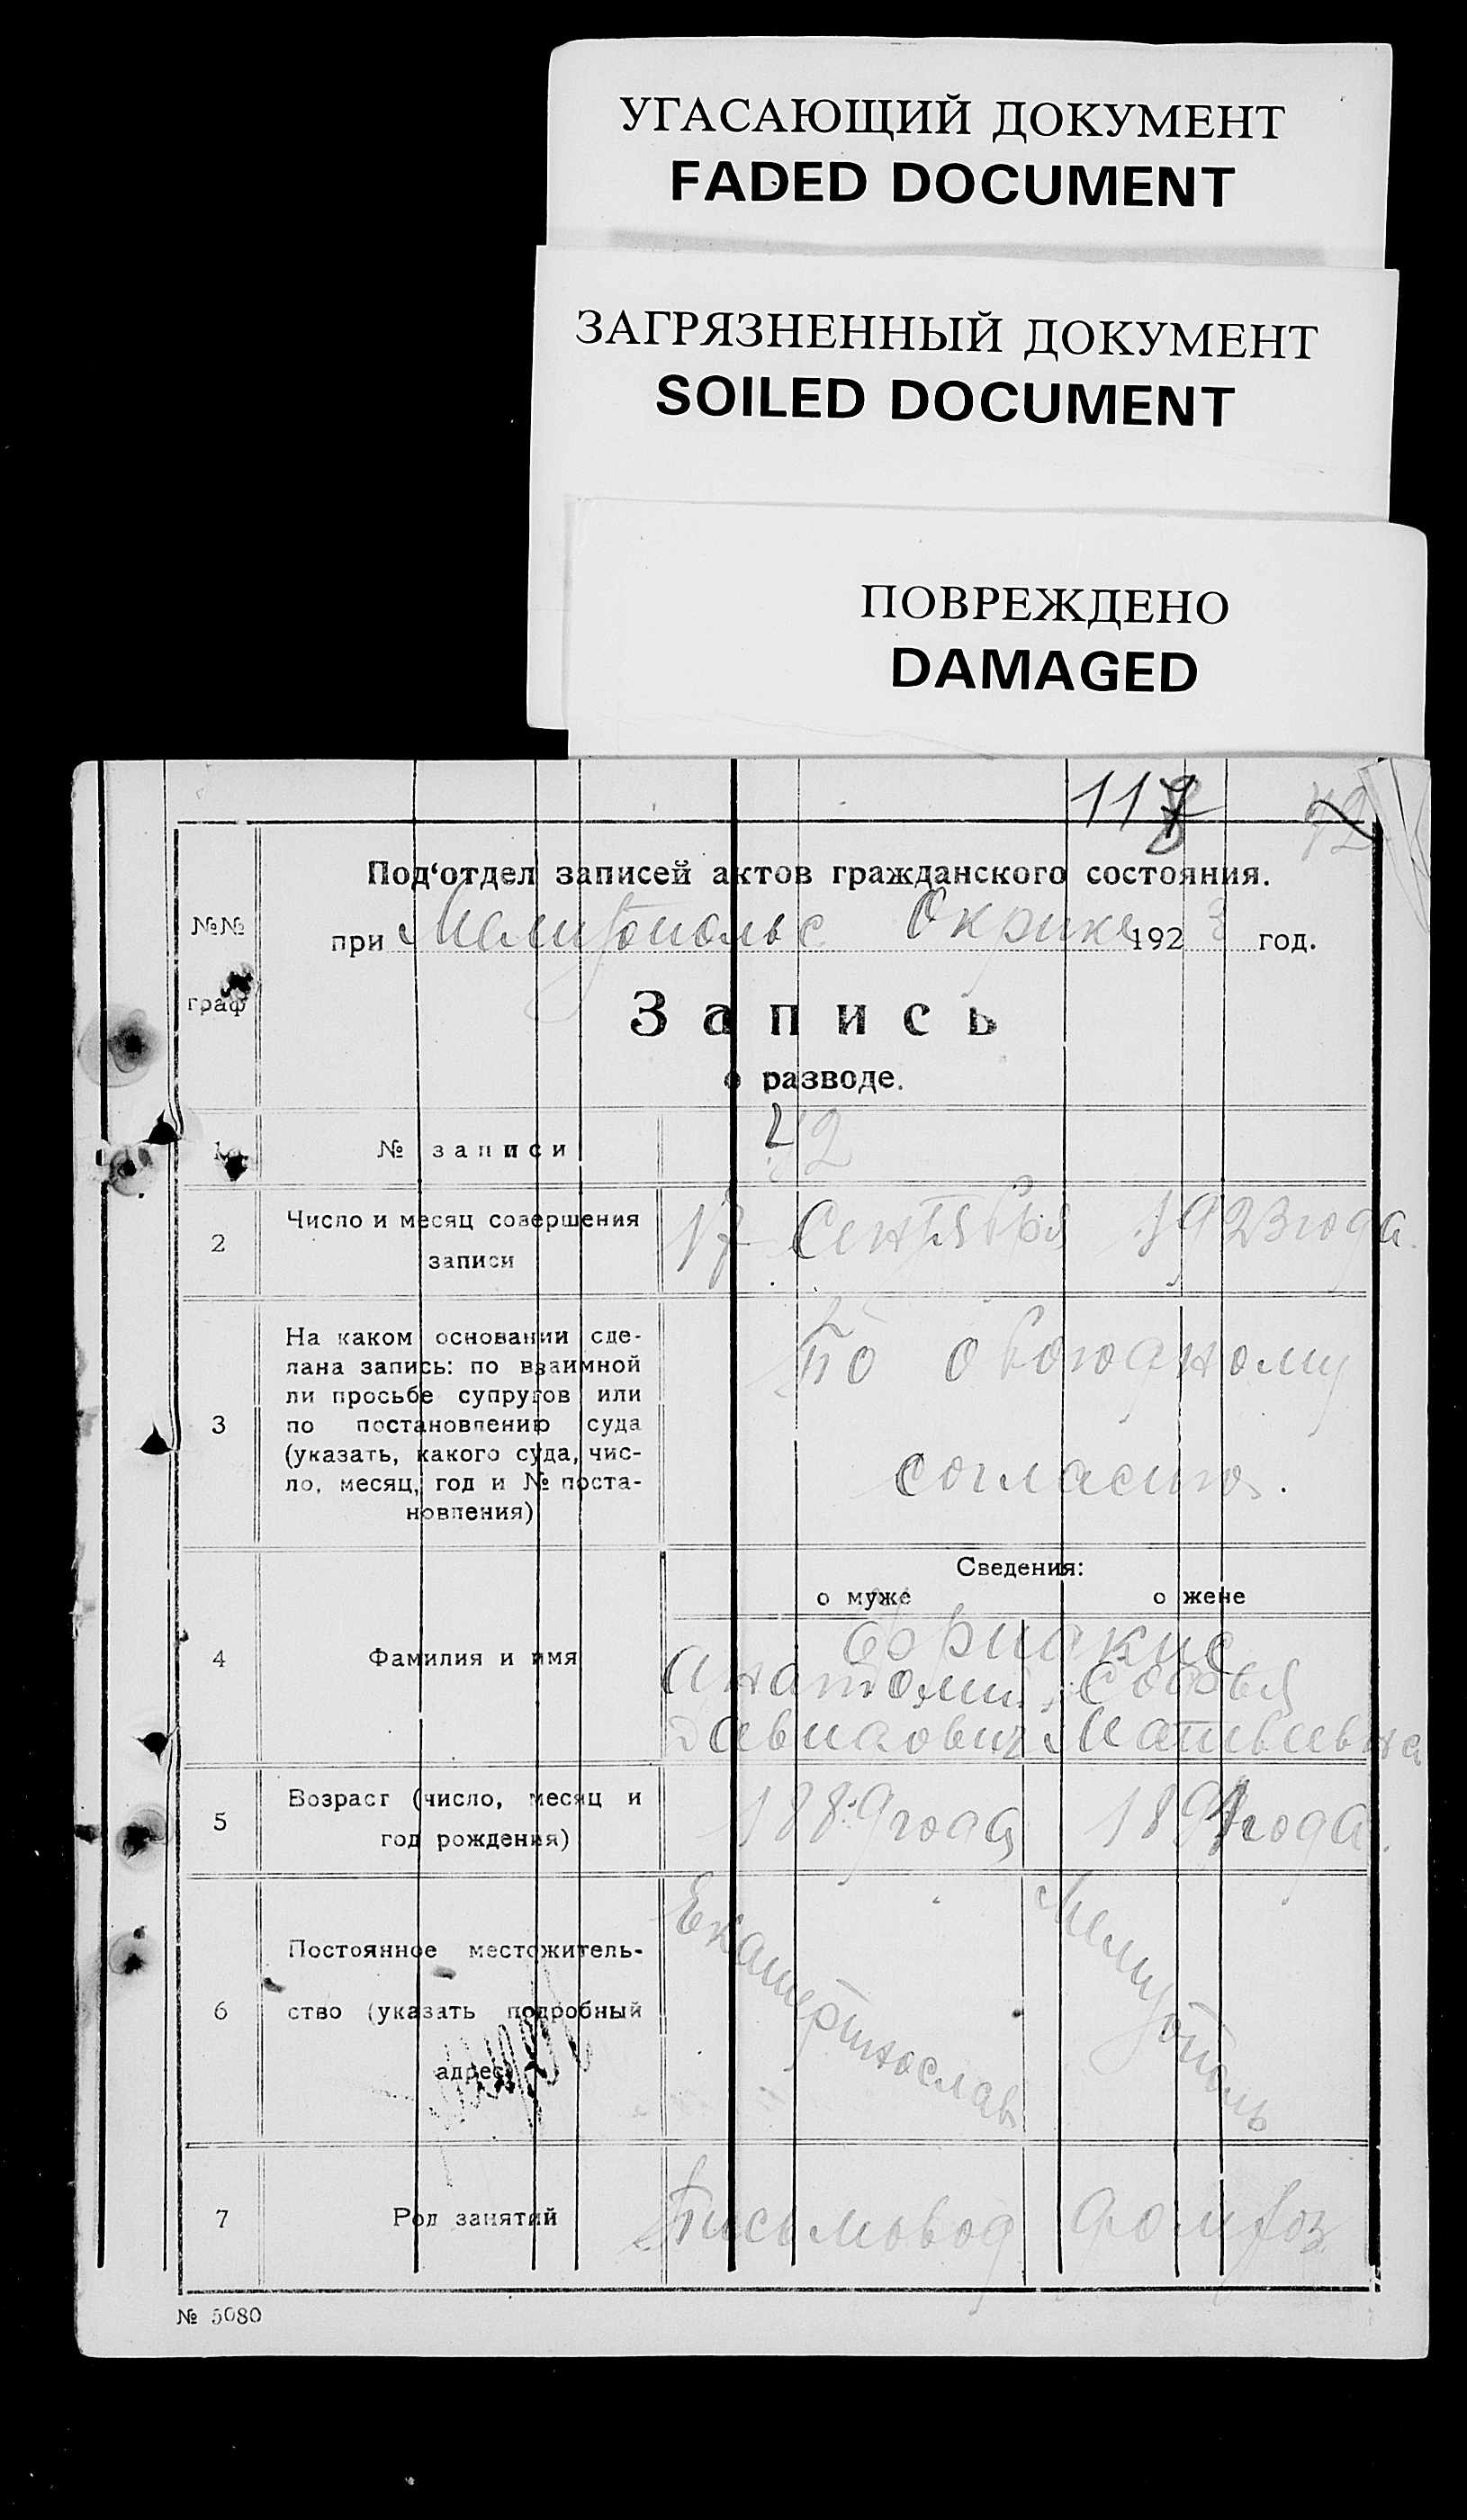 УГАСАЮЩИЙ ДОКУМЕНТ
FADED DOCUMENT
ЗАГРЯЗНЕННЫЙ ДОКУМЕНТ
SOILED DOCUMENT
ПОВРЕЖДЕНО
DAMAGED
№№
граф
Под‘отдел записей актов гражданского состояния.
при Мелитопольс Окрике 1923 год.
Запись
о разводе.
1
№ записи
42
2
Число и месяц совершения
записи
17 Сентября 1923 года.
3
На каком основании сде-
лана запись: по взаимной
ли просьбе супругов или
по постановлению суда
(указать, какого суда, чис-
ло, месяц, год и № поста-
новления)
по обоюдному
согласию.
Сведения:
о муже о жене
4
Фамилия и имя
Анатолий Софья
Давидович Матвеевна
5
Возраст (число, месяц и
год рождения)
1889 года 189 года.
6
Постоянное местожитель-
ство (указать подробный
адрес)
Екатеринослав
Мелитополь
7
Род занятий
Письмовод домхоз
№ 5080